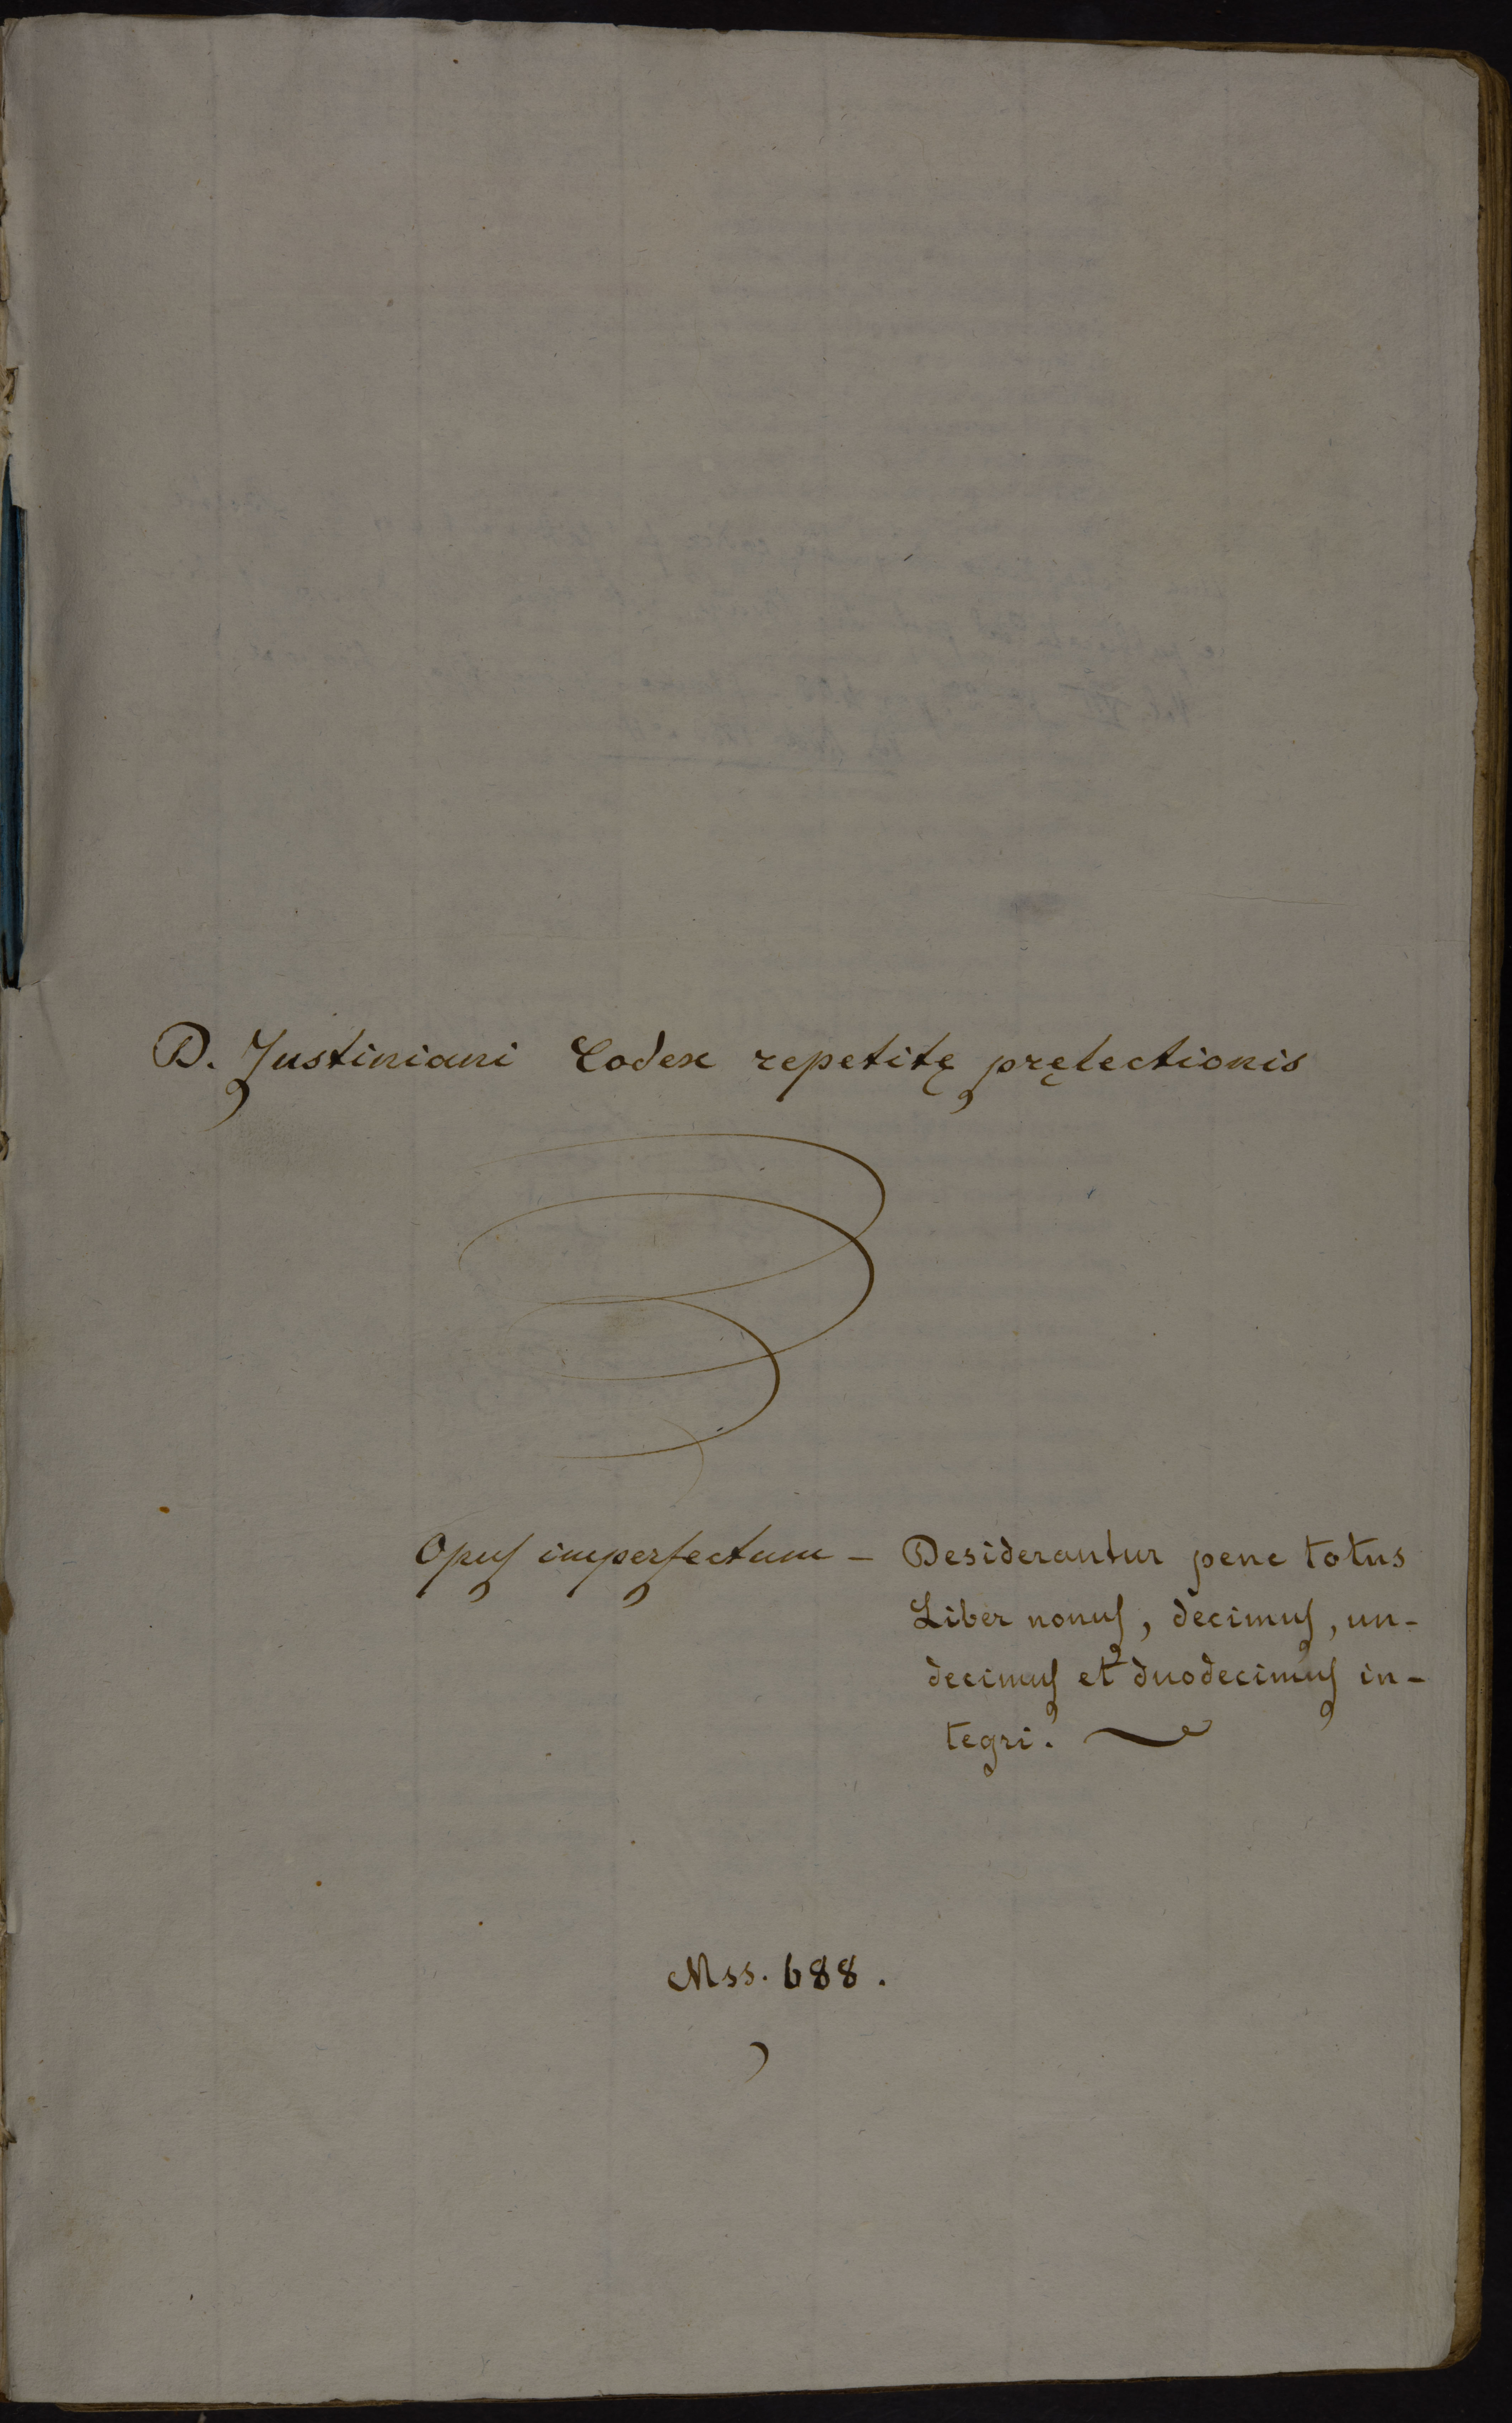 D. Justiniani Codex repetitę pręlectionis
Opus imperfectum – Desiderantur pene totus
Liber nonus, decimus, un-
decimus et duodecimus in-
tegri.
Mss. 688.